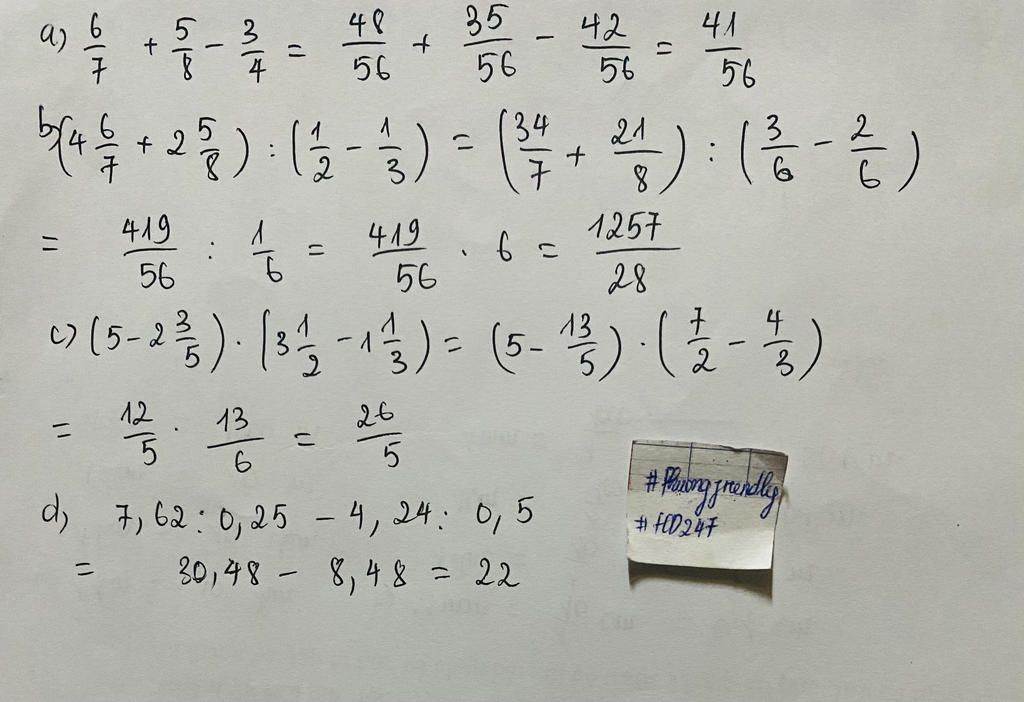 a) 6/7 + 5/8 - 3/4 = 48/56 + 35/56 - 42/56 = 41/56
b) (4 6/7 + 2 5/8) : (1/2 - 1/3) = (34/7 + 21/8) : (3/6 - 2/6)
= 419/56 : 1/6 = 419/56 . 6 = 1257/28
c) (5 - 2 3/5) . (3 1/2 - 1 1/3) = (5 - 13/5) . (7/2 - 4/3)
= 12/5 . 13/6 = 26/5
d) 7,62 : 0,25 - 4,24 : 0,5
= 30,48 - 8,48 = 22
#Phuongfriendly
#FCD247